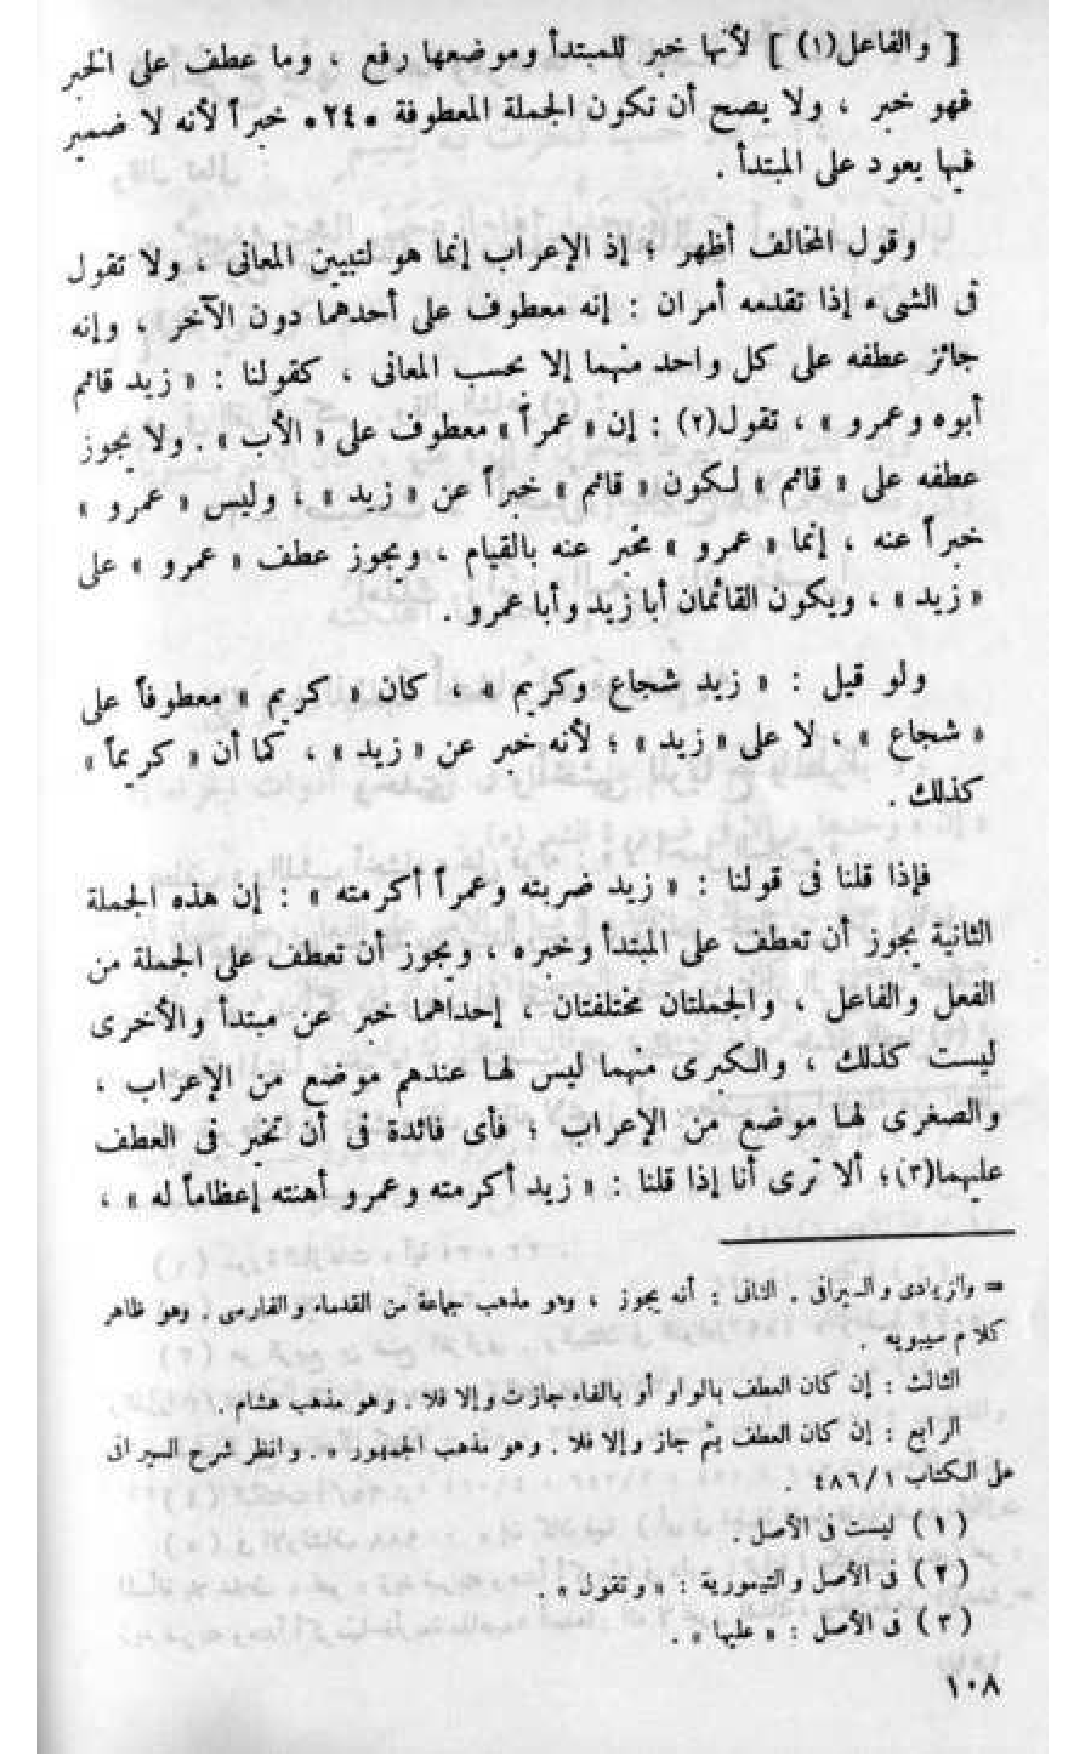 [ والفاعل(١) ] لأنها خبر للمبتدأ وموضعها رفع ، وما عطف على الخبر
فهو خبر ، ولا يصح أن تكون الجملة المعطوفة «٢٤» خبراً لأنه لا ضمير
فيها يعود على المبتدأ .
وقول المخالف أظهر ؛ إذ الإعراب إنما هو لتبيين المعانى ، ولا تقول
فى الشىء إذا تقدمه أمران : إنه معطوف على أحدهما دون الآخر ، وإنه
جائز عطفه على كل واحد منهما إلا بحسب المعانى ، كقولنا : « زيد قائم
أبوه وعمرو » ، تقول(٢) : إن « عمراً » معطوف على « الأب » . ولا يجوز
عطفه على « قائم » لكون « قائم » خبراً عن « زيد » ، وليس « عمرو »
خبراً عنه ، إنما « عمرو » مخبر عنه بالقيام ، ويجوز عطف « عمرو » على
« زيد » ، ويكون القائمان أبا زيد وأبا عمرو .
ولو قيل : « زيد شجاع وكريم » ، كان « كريم » معطوفاً على
« شجاع » ، لا على « زيد » ؛ لأنه خبر عن « زيد » ، كما أن « كريماً »
كذلك .
فإذا قلنا فى قولنا : « زيد ضربته وعمراً أكرمته » : إن هذه الجملة
الثانية يجوز أن تعطف على المبتدأ وخبره ، ويجوز أن تعطف على الجملة من
الفعل والفاعل ، والجملتان مختلفتان ، إحداهما خبر عن مبتدأ والأخرى
ليست كذلك ، والكبرى منهما ليس لها عندهم موضع من الإعراب ،
والصغرى لها موضع من الإعراب ؛ فأى فائدة فى أن تخبر فى العطف
عليهما(٣)؛ ألا ترى أنا إذا قلنا : « زيد أكرمته وعمرو أهنته إعظاماً له » ،
= والزيادى والسيرافى . الثانى : أنه يجوز ، وهو مذهب جماعة من القدماء والفارسى . وهو ظاهر
كلام سيبويه .
الثالث : إن كان العطف بالواو أو بالفاء جازت وإلا فلا . وهو مذهب هشام .
الرابع : إن كان العطف بثم جاز وإلا فلا . وهو مذهب الجمهور » . وانظر شرح السيرافى
على الكتاب ١/٤٨٦ .
(١) ليست فى الأصل .
(٢) فى الأصل والتيمورية : « وتقول » .
(٣) فى الأصل : « عليها » .
١٠٨